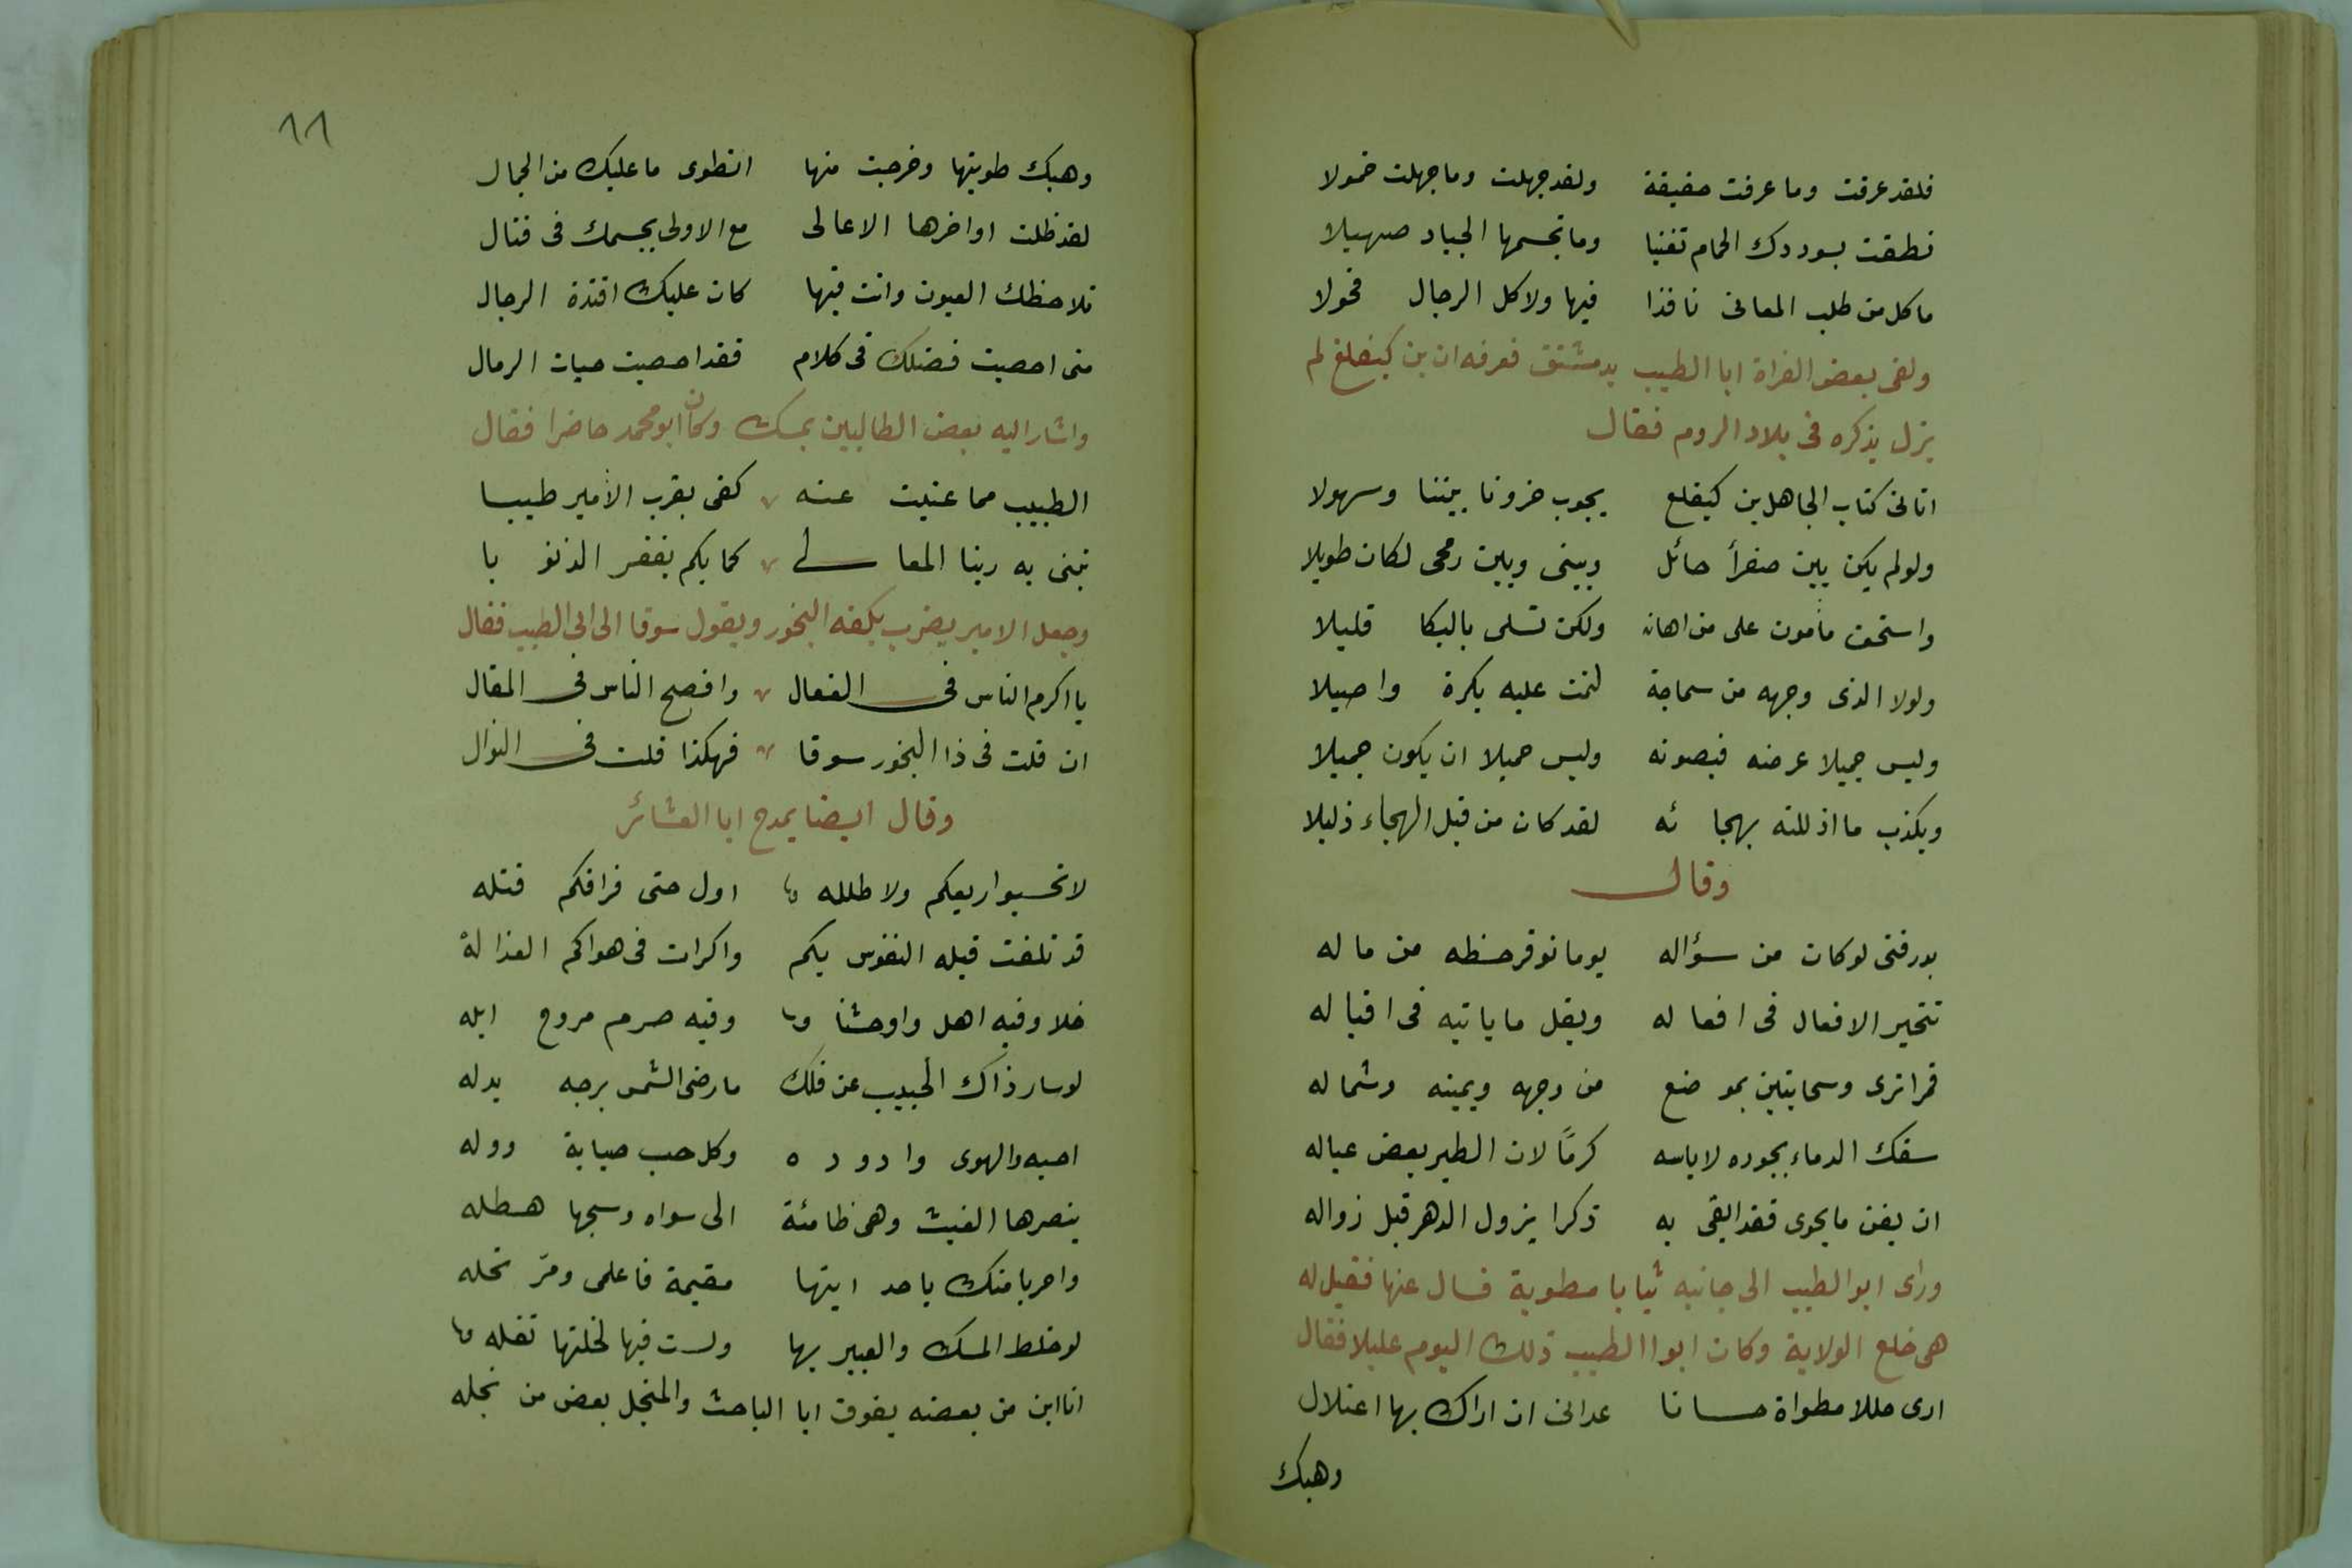 فلقد عرفت وما عرفت حقيقة ولقد جهلت وما جهلت خمولا
نطقت بسوددك الحمام تغنيا وما تجسمها الجياد صهيلا
ما كل من طلب المعانى نافذا فيها ولا كل الرجال فحولا
ولقى بعض الغزاة ابا الطيب بدمشق فعرفه ان بن كيغلغ لم
يزل يذكره فى بلاد الروم فقال
اتانى كتاب الجاهل بن كيغلغ يجوب حزونا بيننا وسهولا
ولو لم يكن بين صفرأ حائل وبينى وبين رمحى لكان طويلا
واسحق مأمون على من اهانه ولكن تسلى بالبكا قليلا
ولولا الذى وجهه من سماجة لنمت عليه بكرة واصيلا
وليس جميلا عرضه فيصونه وليس جميلا ان يكون جميلا
ويكذب ما اذللته بهجائه لقد كان من قبل الهجاء ذليلا
وقال
بدر فتى لو كان من سؤاله يوما توفر حظه من ماله
تتحير الافعال فى افعاله ويقل ما ياتيه فى اقباله
قمرا ترى وسحابتين بموضع من وجهه ويمينه وشماله
سفك الدماء بجوده لا باسه كرمًا لان الطير بعض عياله
ان يفن ما يحوى فقد ابقى به ذكرا يزول الدهر قبل زواله
وراى ابو الطيب الى جانبه ثيابا مطوية فسال عنها فقيل له
هى خلع الولاية وكان ابوا الطيب ذلك اليوم عليلا فقال
ارى حللا مطواة حسانا عدانى ان اراك بها اعتلال
وهبك
١١
وهبك طويتها وخرجت منها انطوى ما عليك من الجمال
لقد ظلت اواخرها الاعالى مع الاولى بجسمك فى قتال
تلاحظك العيون وانت فيها كان عليك افئدة الرجال
متى احصيت فضلك فى كلام فقد احصيت حبات الرمال
واشار اليه بعض الطالبين بمسك وكان ابو محمد حاضرا فقال
الطيب مما غنيت عنه كفى بقرب الأمير طيبا
يبنى به ربنا المعالى كما بكم يغفر الذنوبا
وجعل الامير يضرب بكفه البخور ويقول سوقا الى ابى الطيب فقال
يا اكرم الناس فى الفعال وافصح الناس فى المقال
ان قلت فى ذا البخور سوقا فهكذا قلت فى النوال
وقال ايضا يمدح ابا العشائر
لا تحسبوا ربعكم ولا طلله اول حى فراقكم قتله
قد تلفت قبله النفوس بكم واكرات فى هواكم العذالة
خلا وفيه اهل واوحشنا وفيه صرم مروح ابله
لو سار ذاك الحبيب عن فلك ما رضى الشمس برجه بدله
احبه والهوى وادوره وكل حب صبابة ووله
ينصرها الغيث وهى ظامئة الى سواه وسحبها هطله
واحربا منك يا جد ايتها مقيمة فاعلمى ومر تحله
لو خلط المسك والعبير بها ولست فيها لخلتها تفله
انا ابن من بعضه يفوق ابا الباحث والنجل بعض من نجله